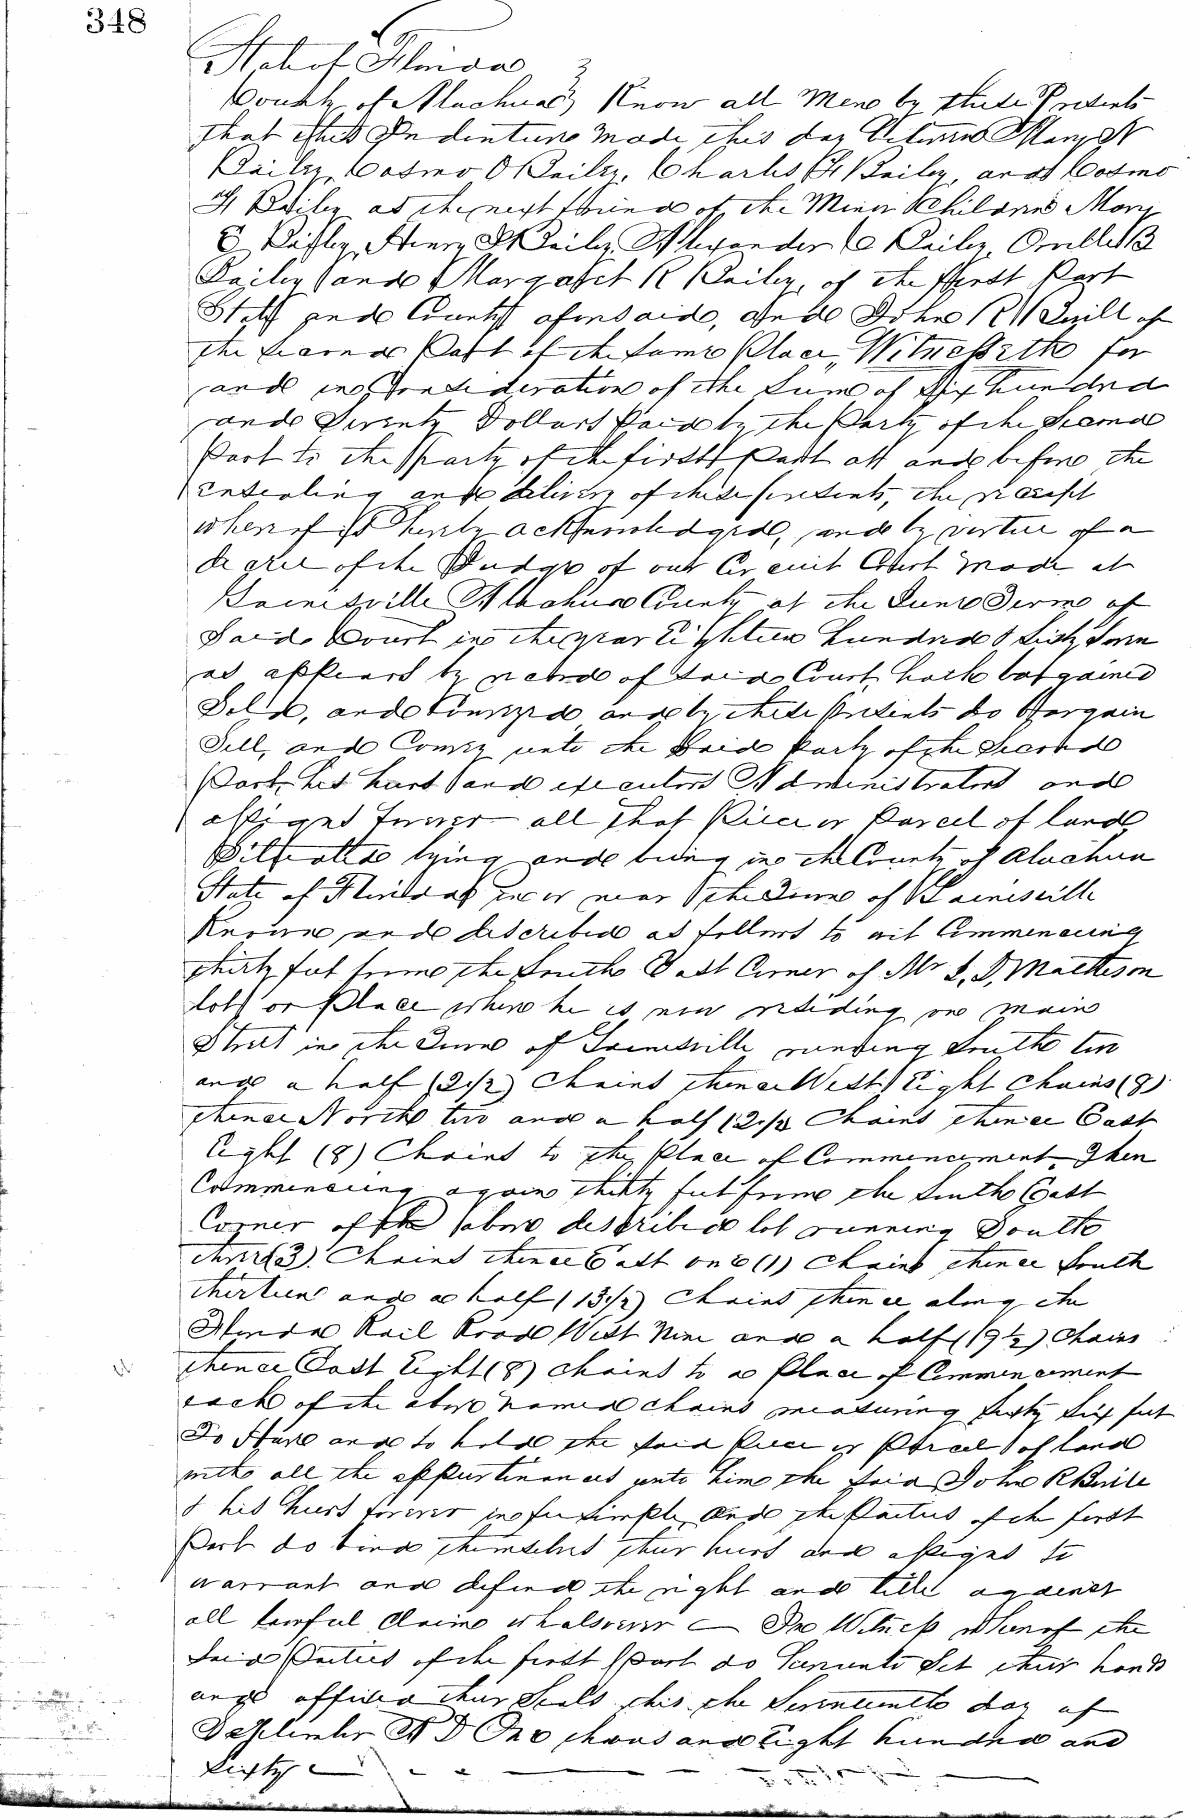 348
State of Florida
County of Alachua } Know all Men by these Presents
that this Indenture made this day between Mary N
Bailey, Cosmo O Bailey, Charles H Bailey, and Cosmo
H Bailey as the next friend of the Minor Children Mary
E Bailey, Henry Bailey, Alexander C Bailey, Orville B
Bailey and Margaret R Bailey, of the first Part
State and County aforesaid, and John R of
the Second Part of the Same Place, Witnesseth for
and in Consideration of the Sum of Six hundred
and Seventy Dollars Paid by the Party of the Second
Part to the party of the first Part at and before the
ensealing and delivery of these presents, the receipt
whereof is hereby acknowledged, and by virtue of a
decree of the Judge of our Circuit Court made at
Gainesville Alachua County at the June Term of
Said Court in the year Eighteen hundred & Sixty
as appears by record of Said Court, hath bargained
Sold, and Conveyed and by these Presents do Bargain
Sell, and Convey unto the Said Party of the Second
Part, his heirs and executors Administrators and
assigns forever all that Piece or Parcel of land
Situated lying and being in the County of Alachua
State of Florida in or near the Town of Gainesville
Known and described as follows to wit Commencing
thirty feet from the South East Corner of Mr Matheson
lot or Place where he is now residing on main
Street in the Town of Gainesville running South two
and a half (2 1/2) Chains thence West Eight Chains (8)
thence North two and a half (2 1/2 Chains thence East
Eight (8) Chains to the Place of Commencement. Then
Commencing again thirty feet from the South East
Corner of the above described lot running South
three (3) Chains thence East one (1) Chain thence South
thirteen and a half (13 1/2) Chains thence along the
Florida Rail Road West Nine and a half (9 1/2) Chains
thence East Eight (8) Chains to a Place of Commencement
each of the above named chains measuring Sixty Six feet
To Have and to hold the said Piece or Parcel of land
with all the appurtinances unto him the said John R
& his heirs forever in fee simple, and the Parties of the first
Part do bind themselves their heirs and assigns to
warrant and defend the right and title against
all lawful Claims whatsoever — In Witness whereof the
Said Parties of the first Part do hereunto Set their hands
and affixed their Seals this the Seventeenth day of
September A D One thousand Eight hundred and
Sixty